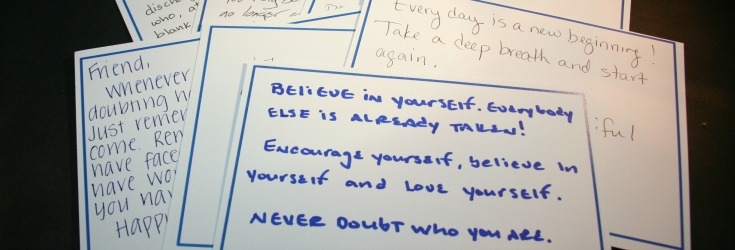 who, at
blank
no longer
Every day is a new beginning!
Take a deep breath and start
again.
iful
Friend,
Whenever
doubting
Just remem
come. Rem
have face
have wo
you hav
Happ
BELIEVE in yourself. Everybody
ELSE is ALREADY TAKEN!
Encourage yourself, believe in
yourself and Love yourself.
NEVER Doubt who you ARE.